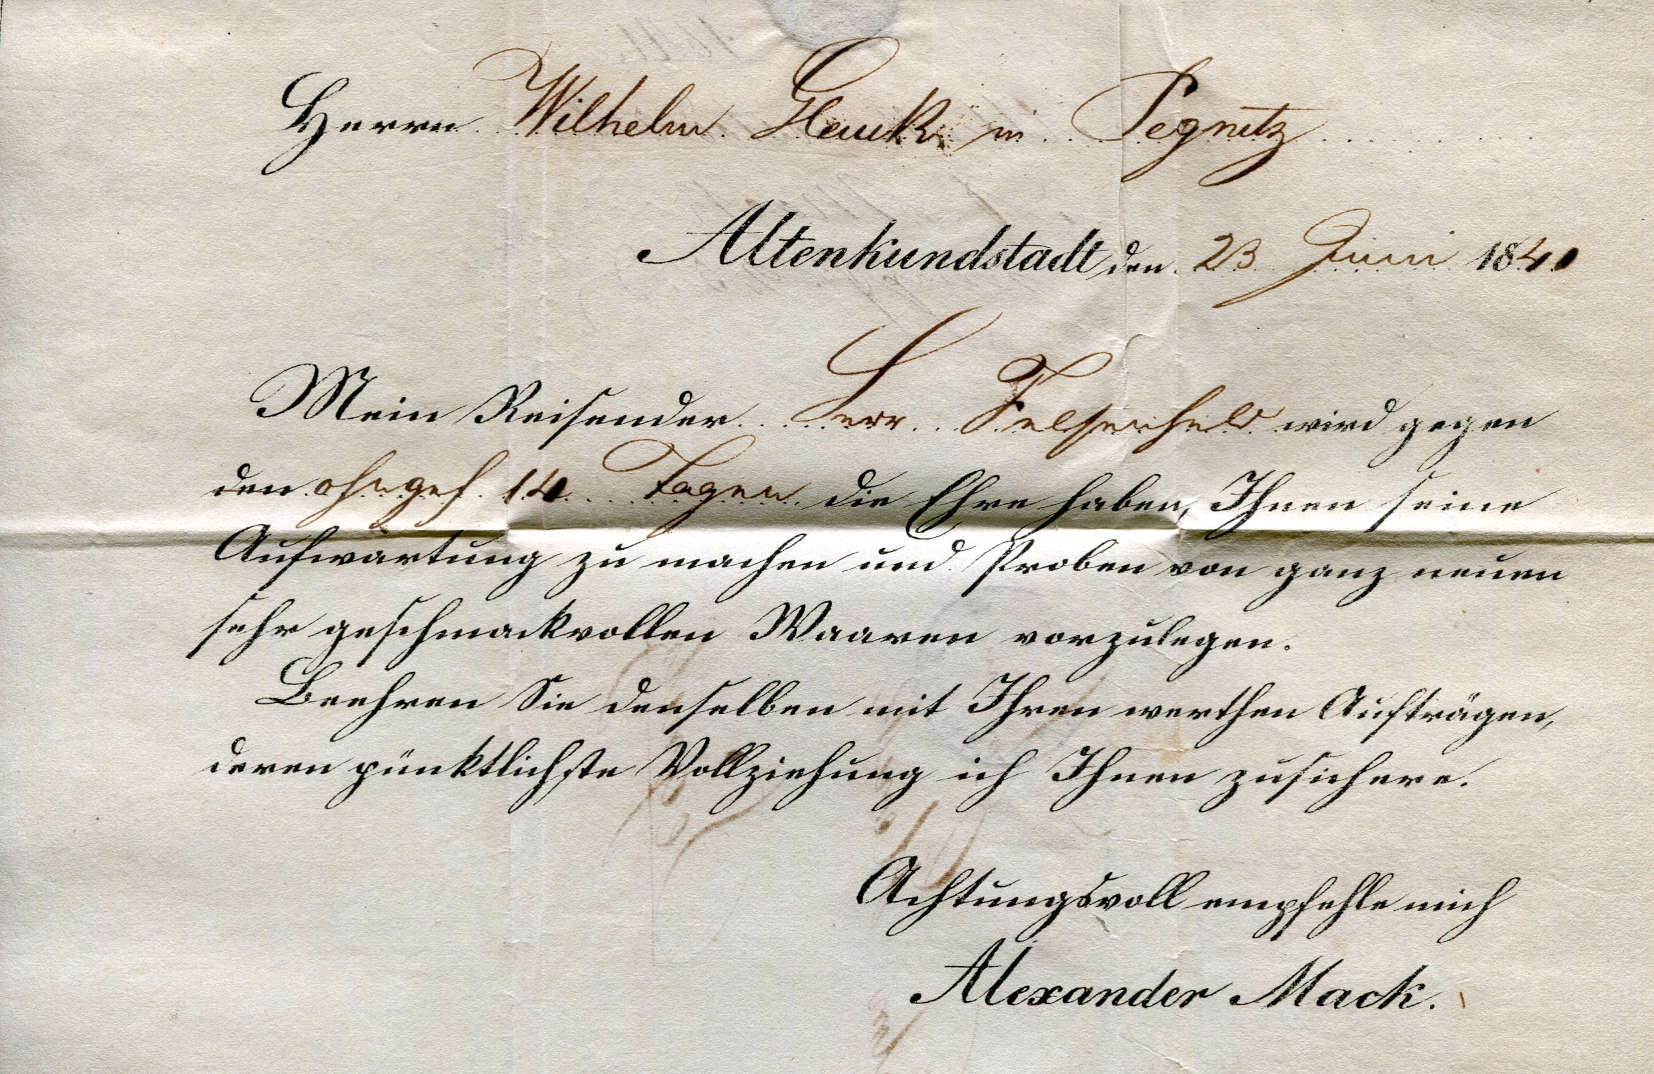 Herrn Wilhelm Hauck in Pegnitz
Altenkundstadt den 23 Juni 1840
Mein Reisender Herr Felsenheld wird gegen
den ohngef. 14 Tagen die Ehre haben, Ihnen seine
Aufwartung zu machen und Proben von ganz neuen
sehr geschmackvollen Waaren vorzulegen.
Beehren Sie denselben mit Ihren werthen Aufträgen,
deren pünktlichste Vollziehung ich Ihnen zusichere.
Achtungsvoll empfehle mich
Alexander Mack.